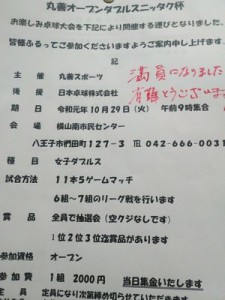 丸善オープンダブルスニッタク杯
お楽しみ卓球大会を下記により開催する運びとなりました。
皆様ふるってご参加くださいますようご案内申し上げます。
記
主 催 丸善スポーツ
満員になりました
後 援 日本卓球株式会社
有難とうございま
日 時 令和元年10月29日(火) 午前9時集合
会 場 横山南市民センター
八王子市椚田町127-3 TEL 042-666-0031
種 目 女子ダブルス
試合方法 11本5ゲームマッチ
6組~7組のリーグ戦を行います
賞 品 全員で抽選会(空クジなしです)
1位2位3位迄賞品があります
参加資格 オープン
参 加 費 1組 2000円 当日集金いたします
定 員 定員になり次第締め切らせていただきます